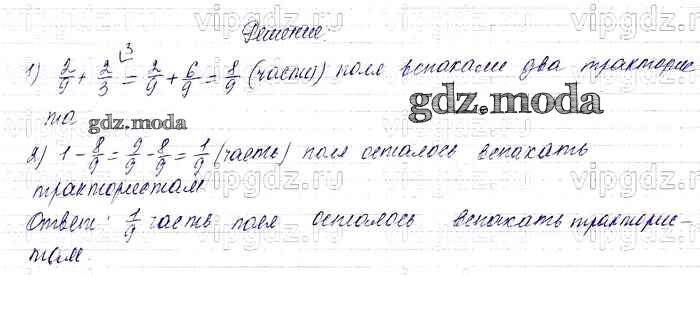 Решение:
1) 2/9 + 2/3 = 2/9 + 6/9 = 8/9 (части) поля вспахали два трактори-
ста
2) 1 - 8/9 = 9/9 - 8/9 = 1/9 (часть) поля осталось вспахать
трактористам
Ответ: 1/9 часть поля осталось вспахать тракторис-
там.
gdz.moda
gdz.moda
vipgdz.ru